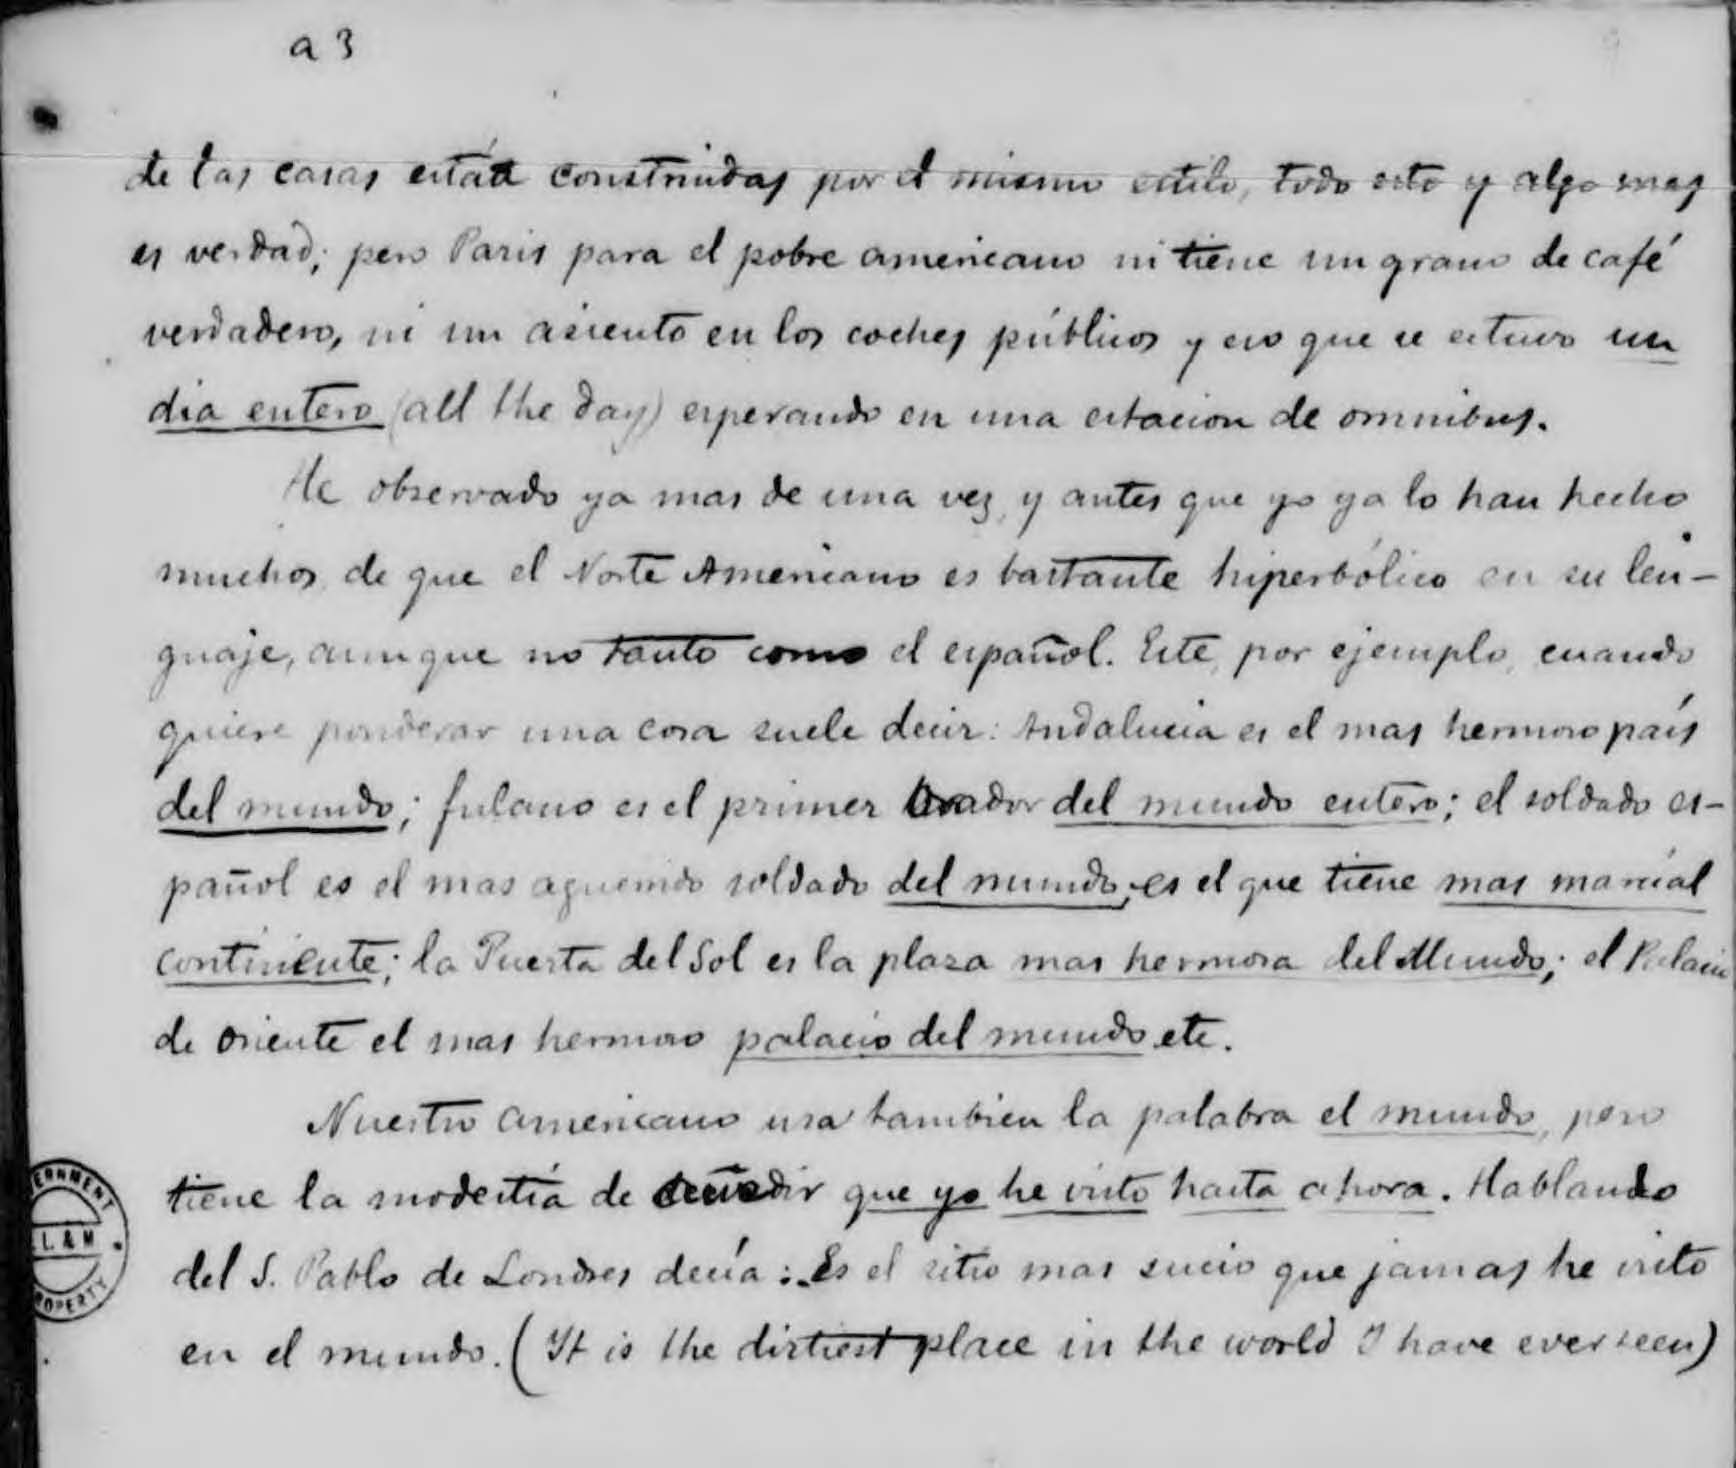 a 3
de las casas están construidas por el mismo estilo, todo esto y algo mas
es verdad; pero Paris para el pobre americano ni tiene un grano de café
verdadero, ni un asiento en los coches públicos y eso que se estuvo un
dia entero (all the day) esperando en una estacion de omnibus.
He observado ya mas de una vez, y antes que yo ya lo han hecho
muchos, de que el Norte Americano es bastante hiperbólico en su len-
guaje, aunque no tanto como el español. Este, por ejemplo, cuando
quiere ponderar una cosa suele decir: Andalucia es el mas hermoso país
del mundo; fulano es el primer orador del mundo entero; el soldado es-
pañol es el mas aguerrido soldado del mundo, es el que tiene mas marcial
continente; la Puerta del Sol es la plaza mas hermosa del Mundo; el Palacio
de Oriente el mas hermoso palacio del mundo etc.
Nuestro americano usa tambien la palabra el mundo, pero
tiene la modestia de que yo he visto hasta ahora. Hablando
del S. Pablo de Londres decía: Es el sitio mas sucio que jamas he visto
en el mundo. (It is the dirtiest place in the world I have ever seen)
ERNMENT
L & M
ROPERTY